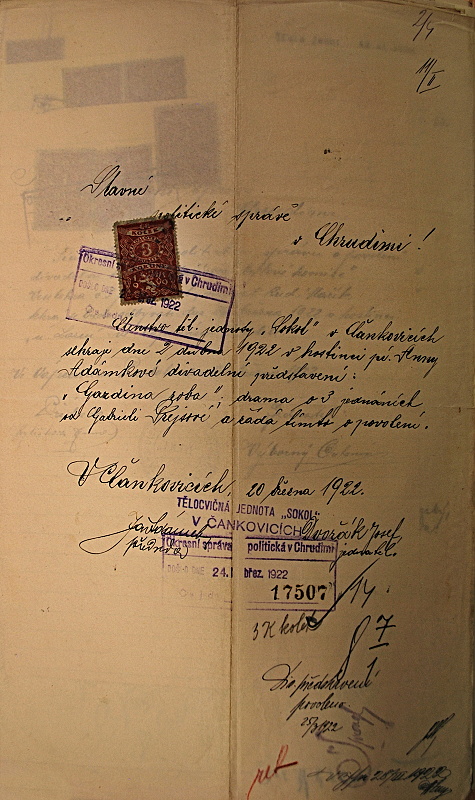 2/4
Slavné
politické správě
v Chrudimi!
KOLEK
3
Okresní správa politická v Chrudimi
DOŠLO DNE
břez. 1922
Členstvo těl. jednoty „Sokol" v Čankovicích
sehraje dne 2. dubna 1922 v hostinci pí. Anny
Adámkové divadelní představení:
„Gazdina roba", drama o 3 jednáních
od Gabriely Preisové a žádá tímto o povolení.
V Čankovicích, 20 března 1922.
TĚLOCVIČNÁ JEDNOTA „SOKOL"
V ČANKOVICÍCH
Dvořák Josef
jednatel
Okresní správa politická v Chrudimi
DOŠLO DNE 24. břez. 1922
17507
3 K kolek
14
7
1
představení
povoleno
1922